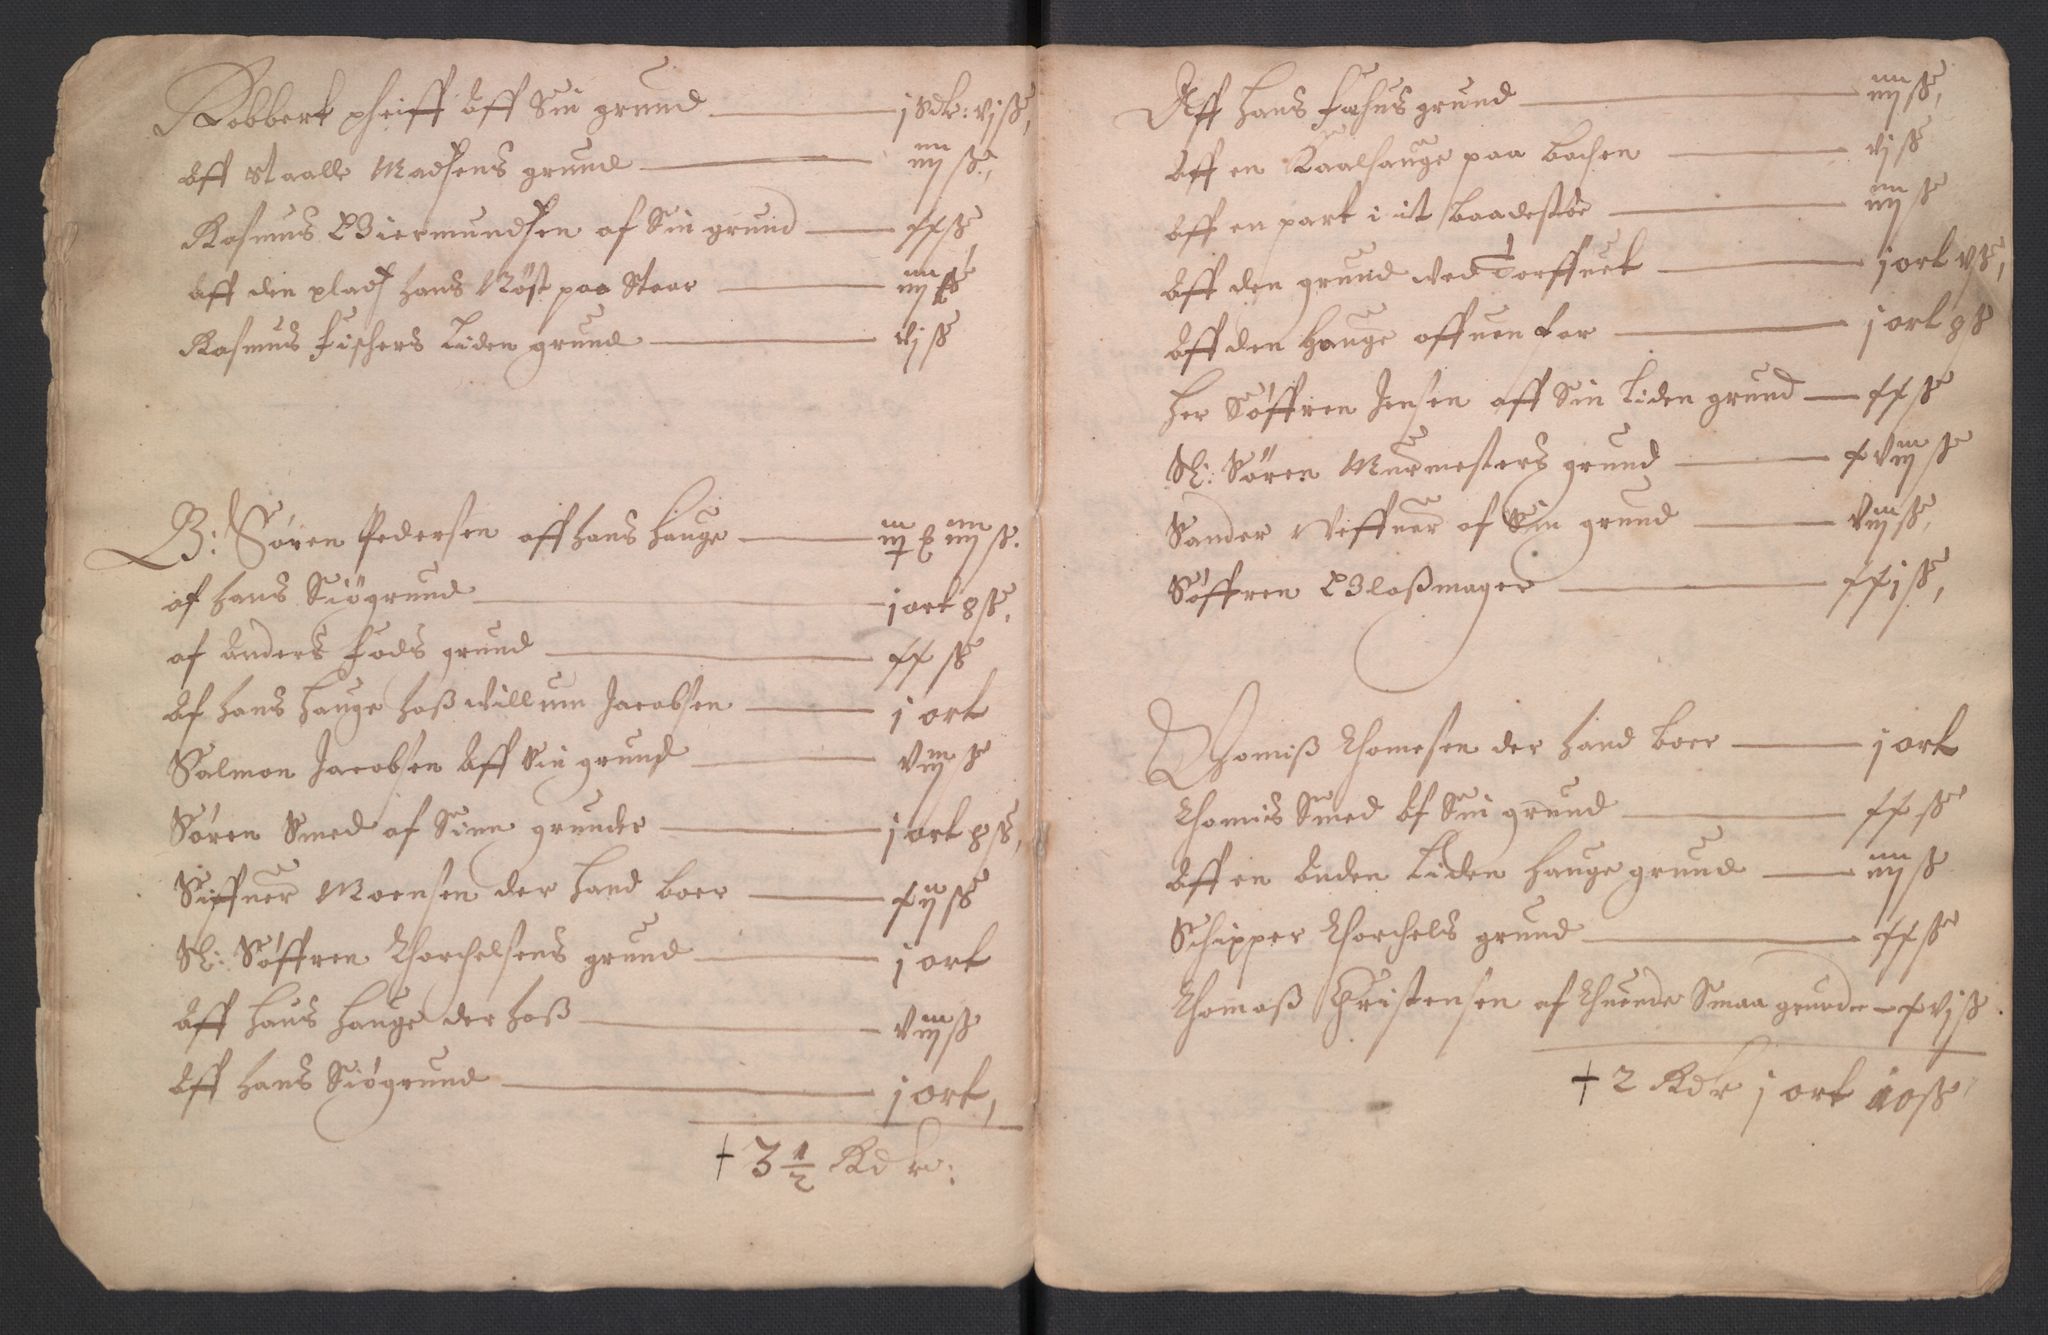 Robbert pheiff Aff Sin grund — j Rdr: vjß,
Aff Staalle Madsens grund — iiijß,
Rasmus Giermundsen af Sin grund — xxß,
Aff den pladtz hans Röst paa Staar — iiijß
Rasmus Fischers Liden grund — vjß
B: Sören Pedersen aff hans hauge — iijß.
af hans Siögrund — j ort 8ß,
af Anders Fods grund — xxß
Af hans hauge hoß Willum Jacobsen — j ort
Salmon Jacobsen Aff Sin grund — viijß
Sören Smed af Sinn grunder — j ort 8ß,
Siffuer Moensen der hand boer — xijß
Sl: Söffren Thorchelsens grund — j ort
Aff hans hauge der hoß — viijß
Aff hans Siögrund — j ort,
+ 3 1/2 Rdr:
Aff hans Fæhus grund — iiijß,
Aff en Kaalhauge paa bachen — vjß
Aff en part i it baadestöe — iiijß
Aff den grund ved Torffuet — j ort vß,
Aff den hauge offuen for — j ort 8ß
Her Söffren Jensen aff Sin Liden grund — xxß
Sl: Sören Murmesters grund — xviijß
Sander Veffuer af Sin grund — viijß,
Söffren Glaßmager — xxjß,
Thomiß Thomesen der hand boer — j ort
Thomis Smed Af Sin grund — xxß
Aff en Anden Liden hauge grund — iiijß
Schipper Thorchels grund — xxß
Thomaß Christensen af thuende Smaa grunder — xvjß
+ 2 Rdr j ort 10ß